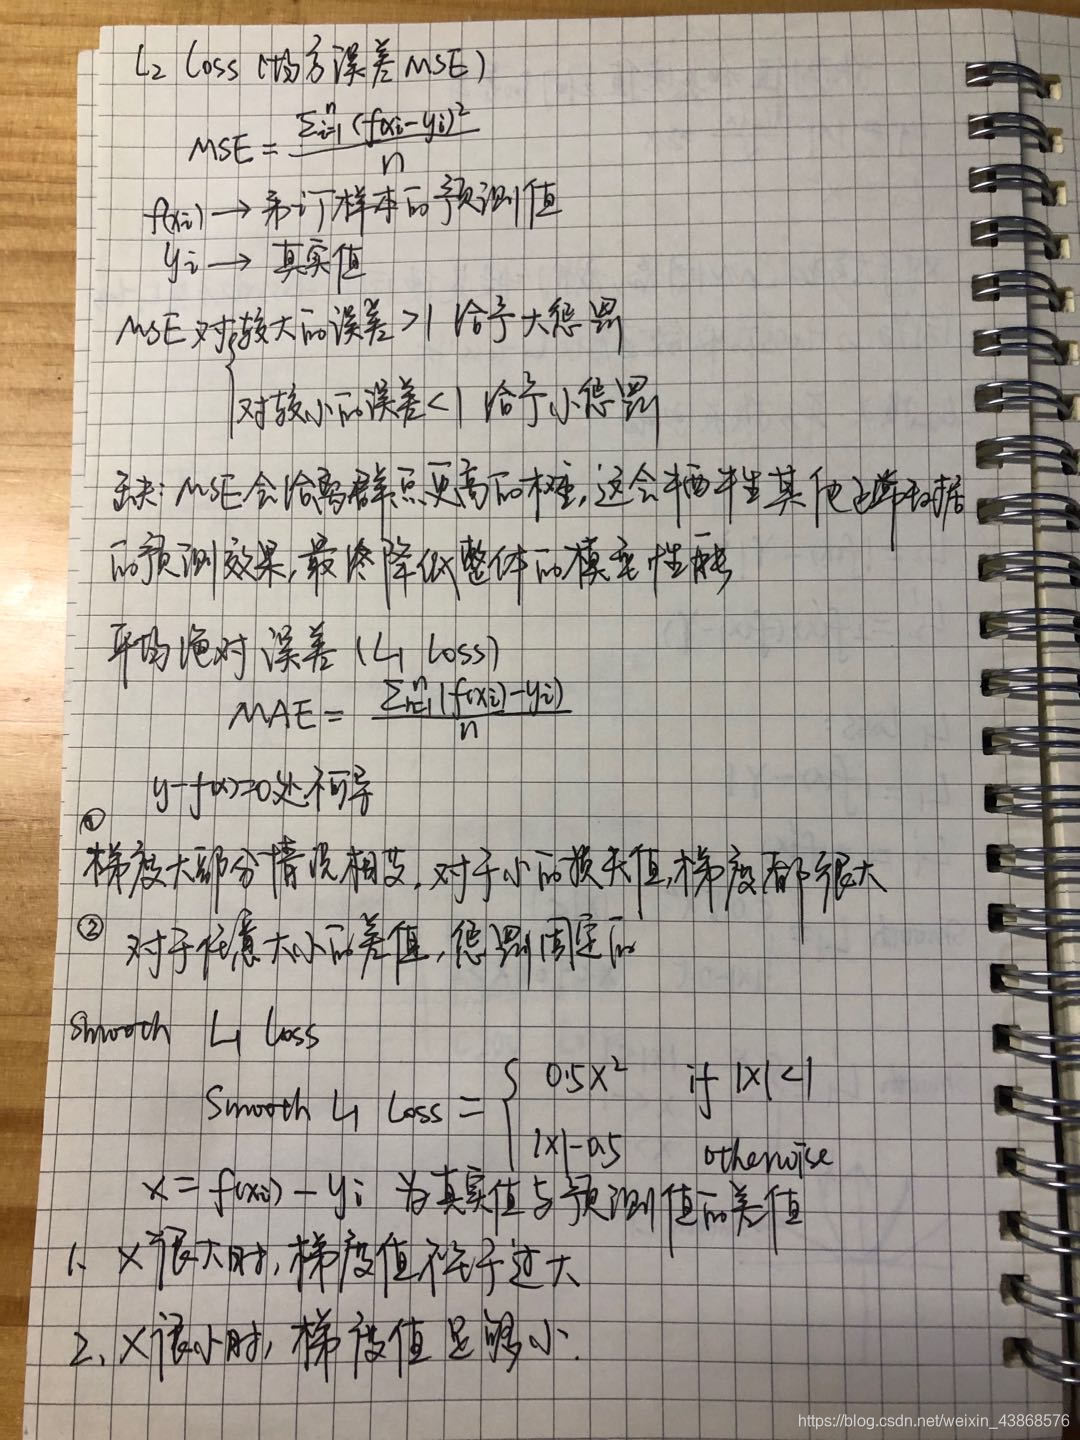 L2 Loss (均方误差MSE)
MSE = Σⁿᵢ₌₁ (f(xi - yi)² / n
f(xi) → 第i个样本的预测值
yi → 真实值
MSE 对较大的误差>1 给予大惩罚
对较小的误差<1 给予小惩罚
缺: MSE会给离群点更高的权重,这会牺牲其他正常数据
的预测效果,最终降低整体的模型性能
平均绝对误差 (L1 Loss)
MAE = Σⁿᵢ₌₁ (f(xi) - yi) / n
y-f(x)=0处不可导
①
梯度大部分情况相等,对于小的损失值,梯度都很大
② 对于任意大小的差值,惩罚固定的
Smooth L1 Loss
Smooth L1 Loss = { 0.5x² if |x|<1
|x|-0.5 otherwise
x = f(xi) - yi 为真实值与预测值的差值
1、x很大时,梯度值不至于过大
2、x很小时,梯度值足够小.
https://blog.csdn.net/weixin_43868576